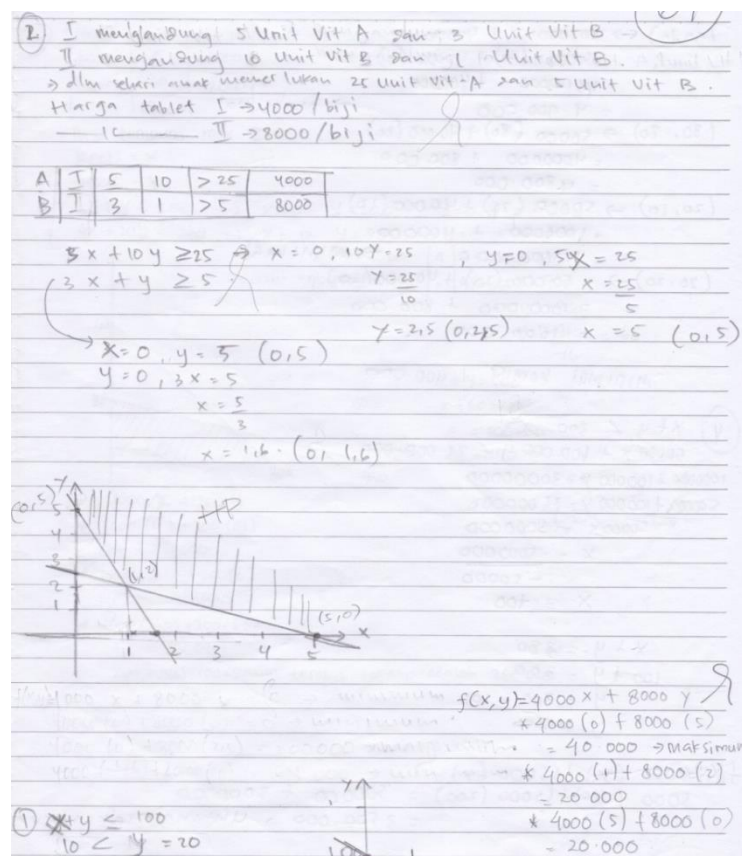 2. I menganSung 5 Unit Vit A San 3 Unit Vit B
II menganSung 10 Unit Vit B San 1 Unit Vit B.
→ dlm sehari anak memerlukan 25 Unit Vit A San 5 Unit Vit B.
Harga tablet I → 4000 / biji
II → 8000 / biji
A | I | 5 | 10 | > 25 | 4000
B | I | 3 | 1 | > 5 | 8000
5 x + 10 y ≥ 25 → x = 0, 10 Y = 25 , y = 0, 5x = 25
3 x + y ≥ 5 Y = 25/10 x = 25/5
Y = 2,5 (0, 2,5) x = 5 (0,5)
x = 0, y = 5 (0,5)
y = 0, 3 x = 5
x = 5/3
x = 1,6 (0, 1,6)
Y
(0,5) 5
4
3
2
1
HP
(1,2)
(5,0)
x
1 2 3 4 5
f(x,y) = 4000 x + 8000 y
* 4000 (0) + 8000 (5)
= 40.000 → maksimum
* 4000 (1) + 8000 (2)
= 20.000
* 4000 (5) + 8000 (0)
= 20.000
1 x + y ≤ 100
10 < y = 20
Y
100